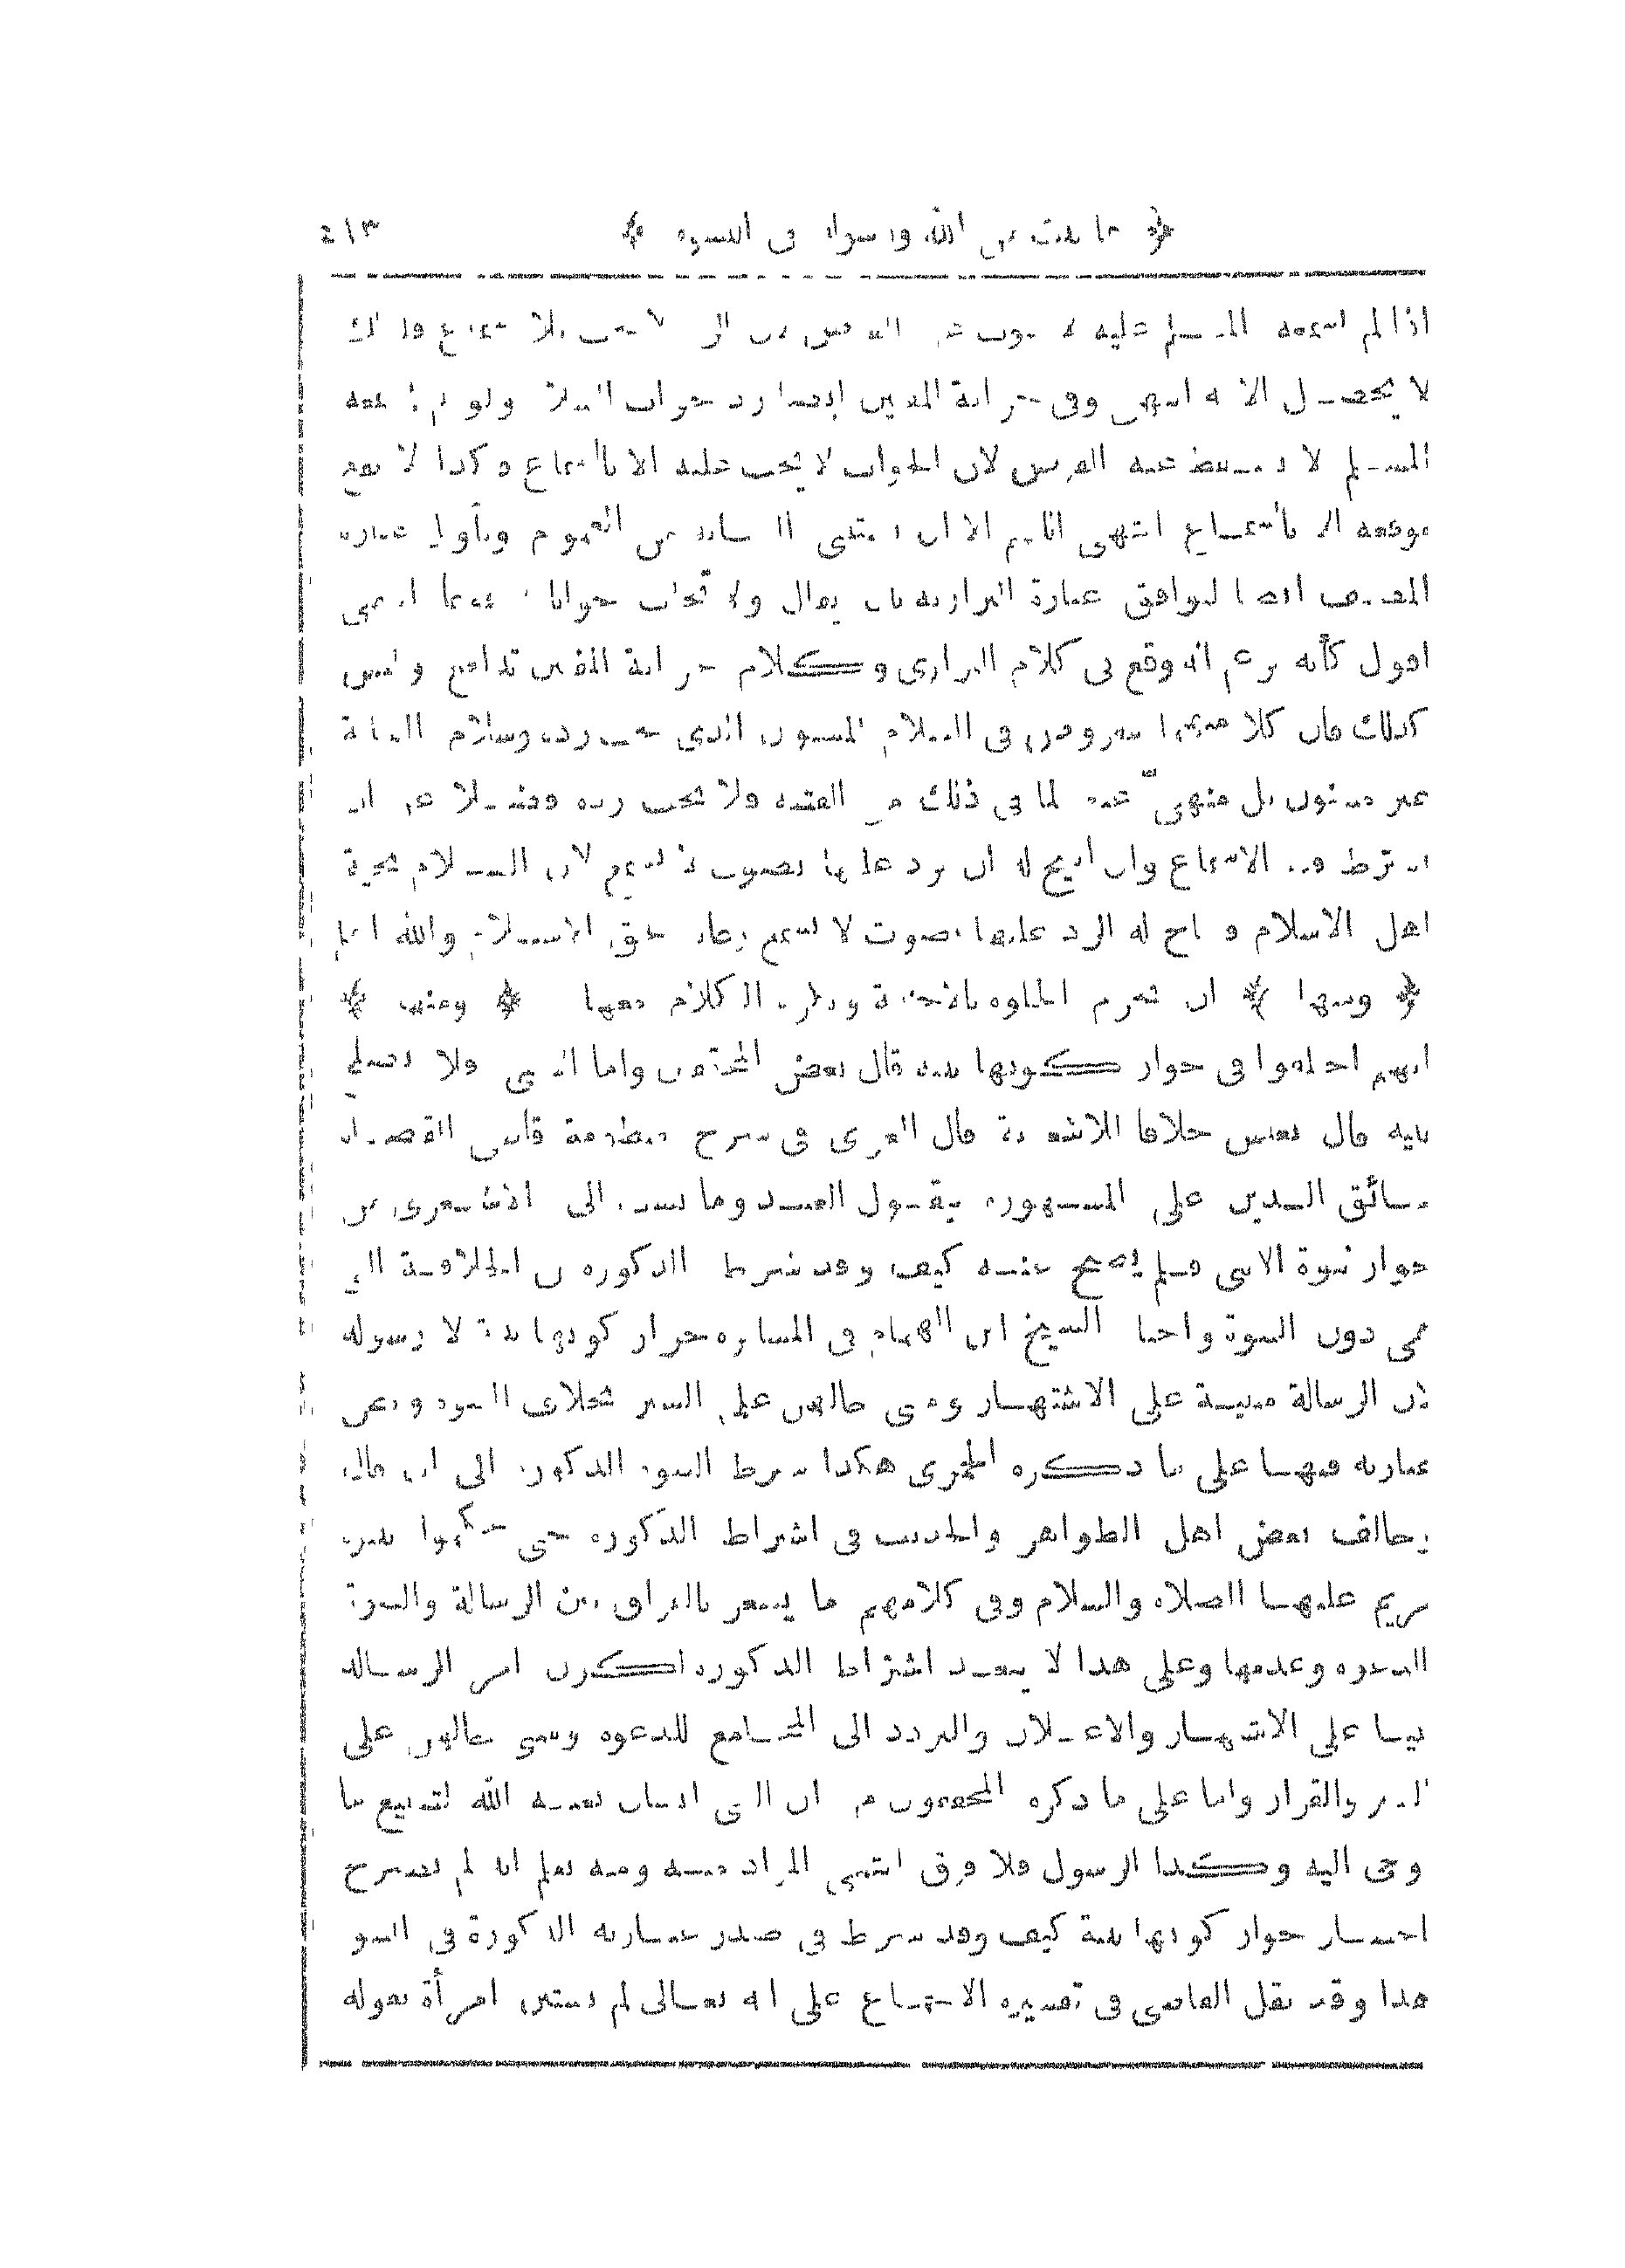 ما من الله ورسوله فى النسوة ٤١٣
اذا لم يسمعه المسلم عليه لا ينوب عن الفرض لان الرد لا يجب بلا سماع وذلك
لا يحصل الا به انتهى وفى خزانة المفتين ايضا رد جواب السلام ولو لم يسمعه
المسلم لا يسقط عنه الفرض لان الجواب لا يجب عليه الا بالسماع وكذا لا يقع
موقعه الا بالسماع انتهى اللهم الا ان يستثنى النساء من العموم ويأول عبارة
المصنف ايضا ليوافق عبارة البزازية بان يقال ولا تجاب جوابا مسمعا انتهى
اقول كأنه زعم انه وقع فى كلام البزازى وكلام خزانة المفتين تدافع وليس
كذلك فان كلا منهما مفروض فى السلام المسنون الذى يجب رده وسلام الشابة
غير مسنون بل منهى عنه لما فى ذلك من الفتنة ولا يجب رده وفضلا عن ان
يشترط فيه الاسماع وان ابيح له ان يرد عليها بصوت لا يسمع لان السلام تحية
اهل الاسلام وابيح له الرد عليها بصوت لا يسمع رعاية لحق الاسلام والله اعلم
ومنها ان تحرم الخلوة بالاجنبية ويكره الكلام معها ومنها
انهم اختلفوا فى جواز كونها نبية قال بعض المحققين واما انثى فلا تصلح
نبية قال بعض خلافا للاشعرية قال الغزى فى شرح منظومة قاضى القضاة
سائق الدين على المشهورة بقول العبد وما نسب الى الاشعرى من
جواز نبوة الانثى فلم يصح عنه كيف وقد شرط الذكورة فى الخلافة التى
هى دون النبوة واختار الشيخ ابن الهمام فى المسايرة جواز كونها نبية لا رسولة
لان الرسالة مبنية على الاشتهار ومبنى حالهن على الستر بخلاف النبوة ونص
عبارته فيها على ما ذكره الحموى هكذا شرط النبوة الذكورة الى ان قال
وخالف بعض اهل الظواهر والحديث فى اشتراط الذكورة حتى حكموا بنبوة
مريم عليها الصلاة والسلام وفى كلامهم ما يشعر بالفرق بين الرسالة والنبوة
الدعوة وعدمها وعلى هذا لا يبعد اشتراط الذكورة لكون امر الرسالة
مبنيا على الاشتهار والاعلان والتردد الى المجامع للدعوة ومبنى حالهن على
الستر والقرار واما على ما ذكره المحققون من ان النبى انسان بعثه الله لتبليغ ما
اوحى اليه وكذا الرسول فلا فرق انتهى المراد منه ومنه يعلم انه لم يصرح
باختيار جواز كونها نبية كيف وقد شرط فى صدر عبارته الذكورة فى النبوة
هذا وقد نقل القاضى فى تفسيره الاجماع على انه تعالى لم يستنبئ امرأة بقوله